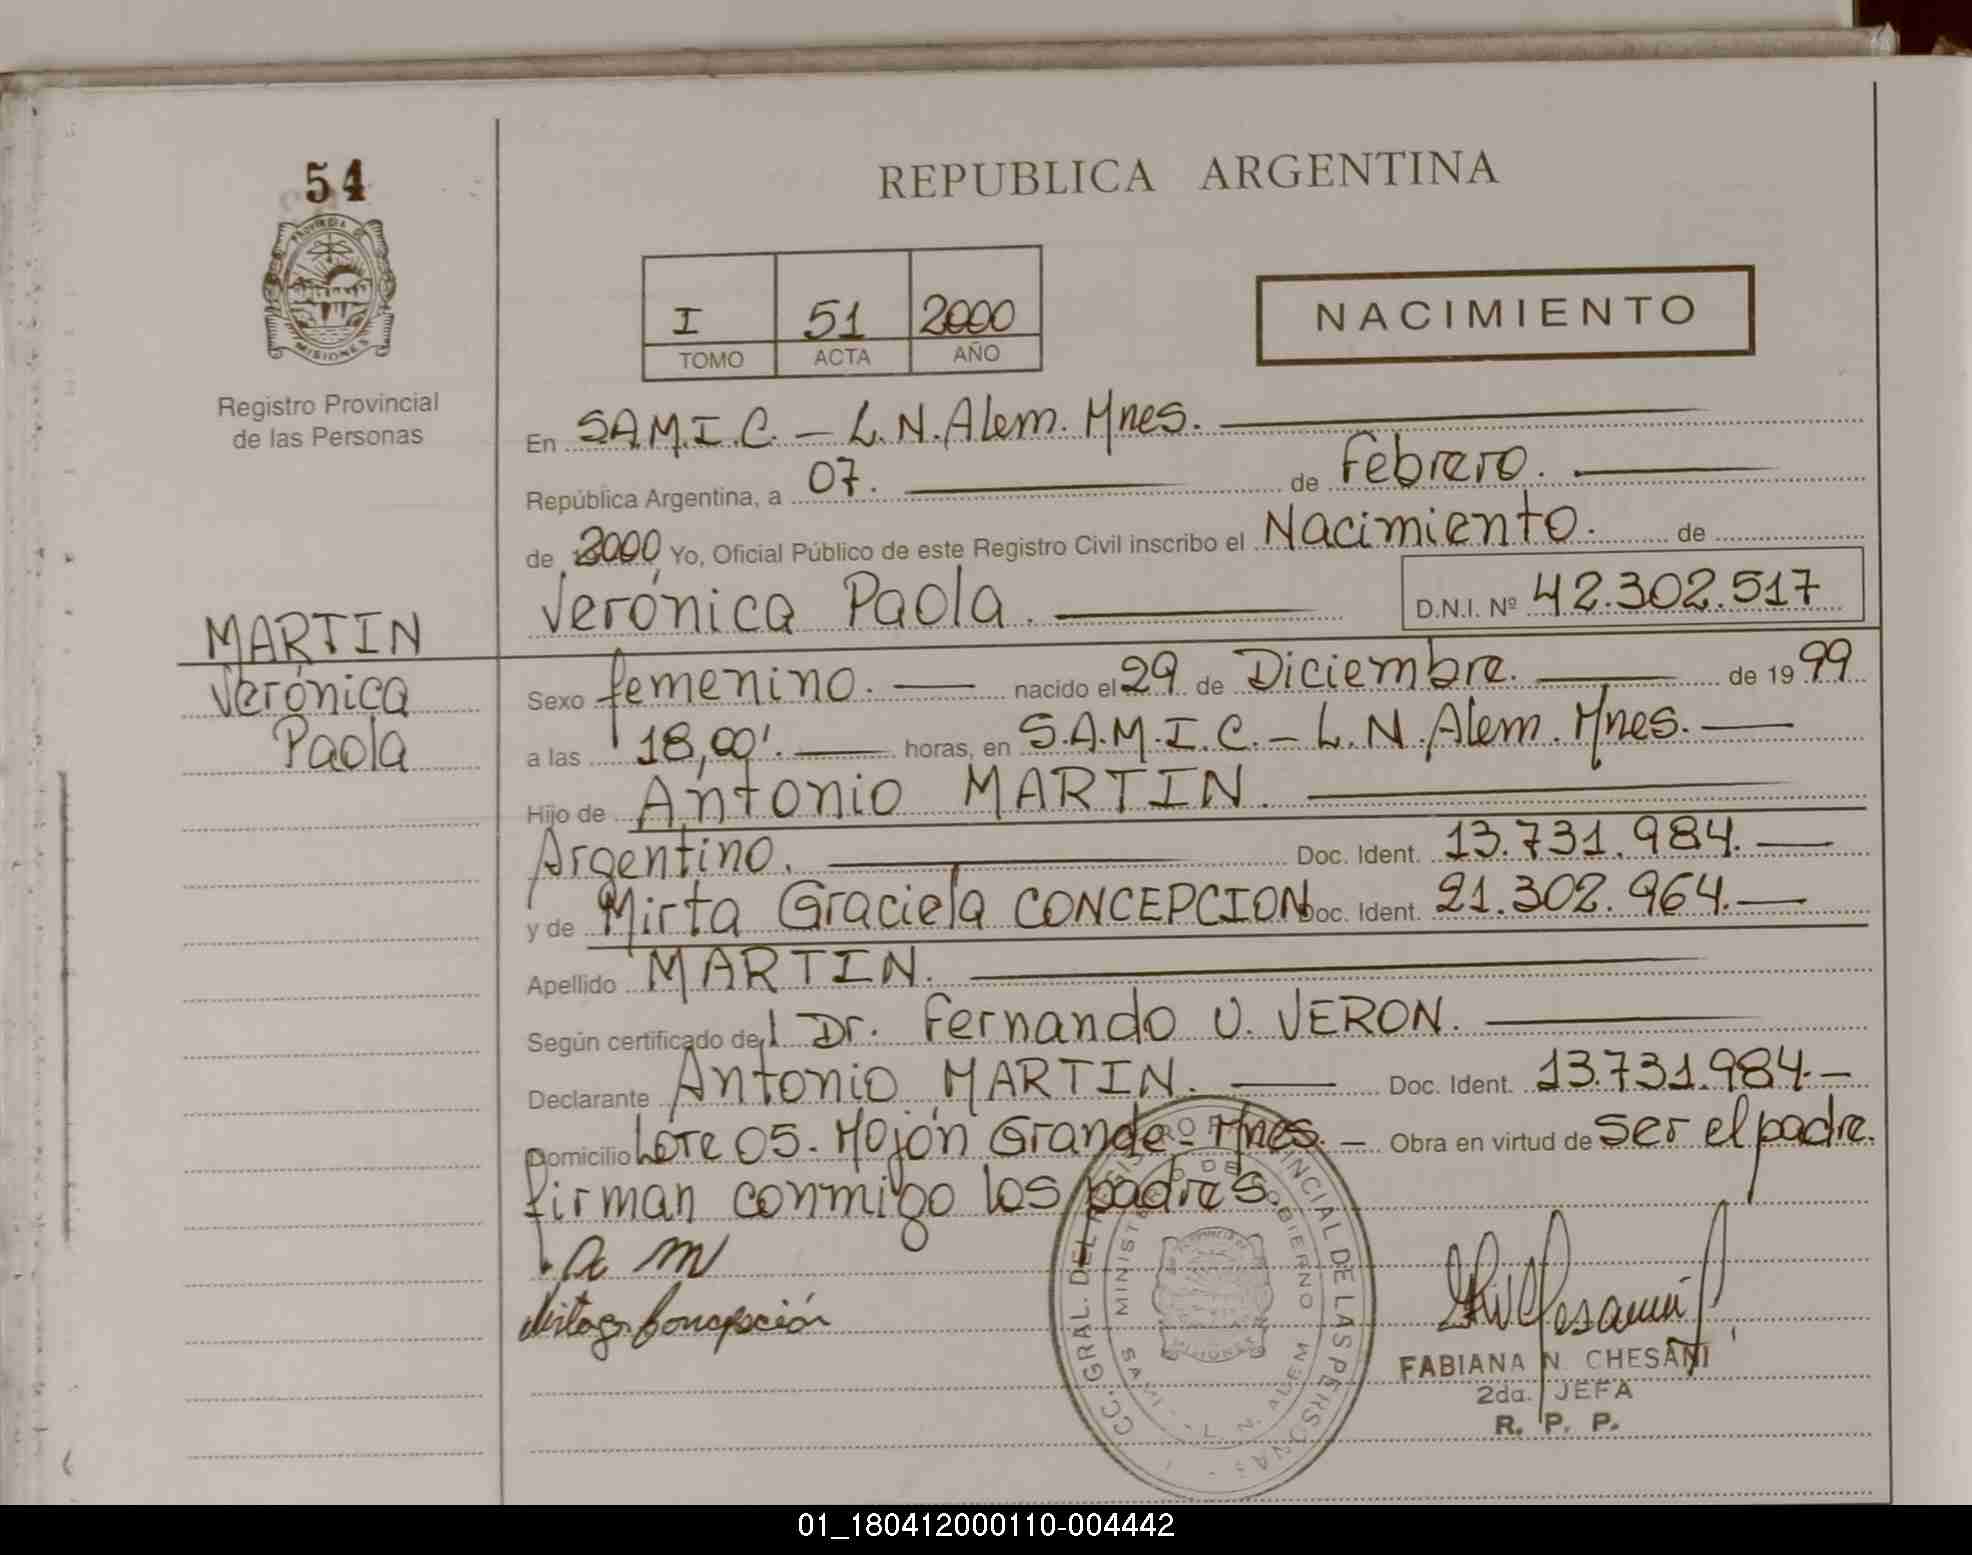 54
PROVINCIA DE
MISIONES
Registro Provincial
de las Personas
MARTIN
Verónica
Paola
REPUBLICA ARGENTINA
I 51 2000
TOMO ACTA AÑO
NACIMIENTO
En S.A.M.I.C. - L.N. Alem. Mnes.
República Argentina, a 07. de Febrero.
de 2000, Yo, Oficial Público de este Registro Civil inscribo el Nacimiento. de
Verónica Paola. D.N.I. Nº 42.302.517
Sexo femenino. nacido el 29 de Diciembre. de 1999
a las 18,00'. horas, en S.A.M.I.C. - L.N. Alem. Mnes.
Hijo de Antonio MARTIN.
Argentino. Doc. Ident. 13.731.984.
y de Mirta Graciela CONCEPCION Doc. Ident. 21.302.964.
Apellido MARTIN.
Según certificado del Dr. Fernando U. VERON.
Declarante Antonio MARTIN. Doc. Ident. 13.731.984.
Domicilio Lote 05. Mojón Grande - Mnes. Obra en virtud de ser el padre.
firman conmigo los padres.
A M
Mirta G. Concepción
FABIANA N. CHESANI
2da. JEFA
R. P. P.
GRAL. DEL REGISTRO PROVINCIAL DE LAS PERSONAS
MINISTERIO DE GOBIERNO
L. N. ALEM
MISIONES
01_180412000110-004442